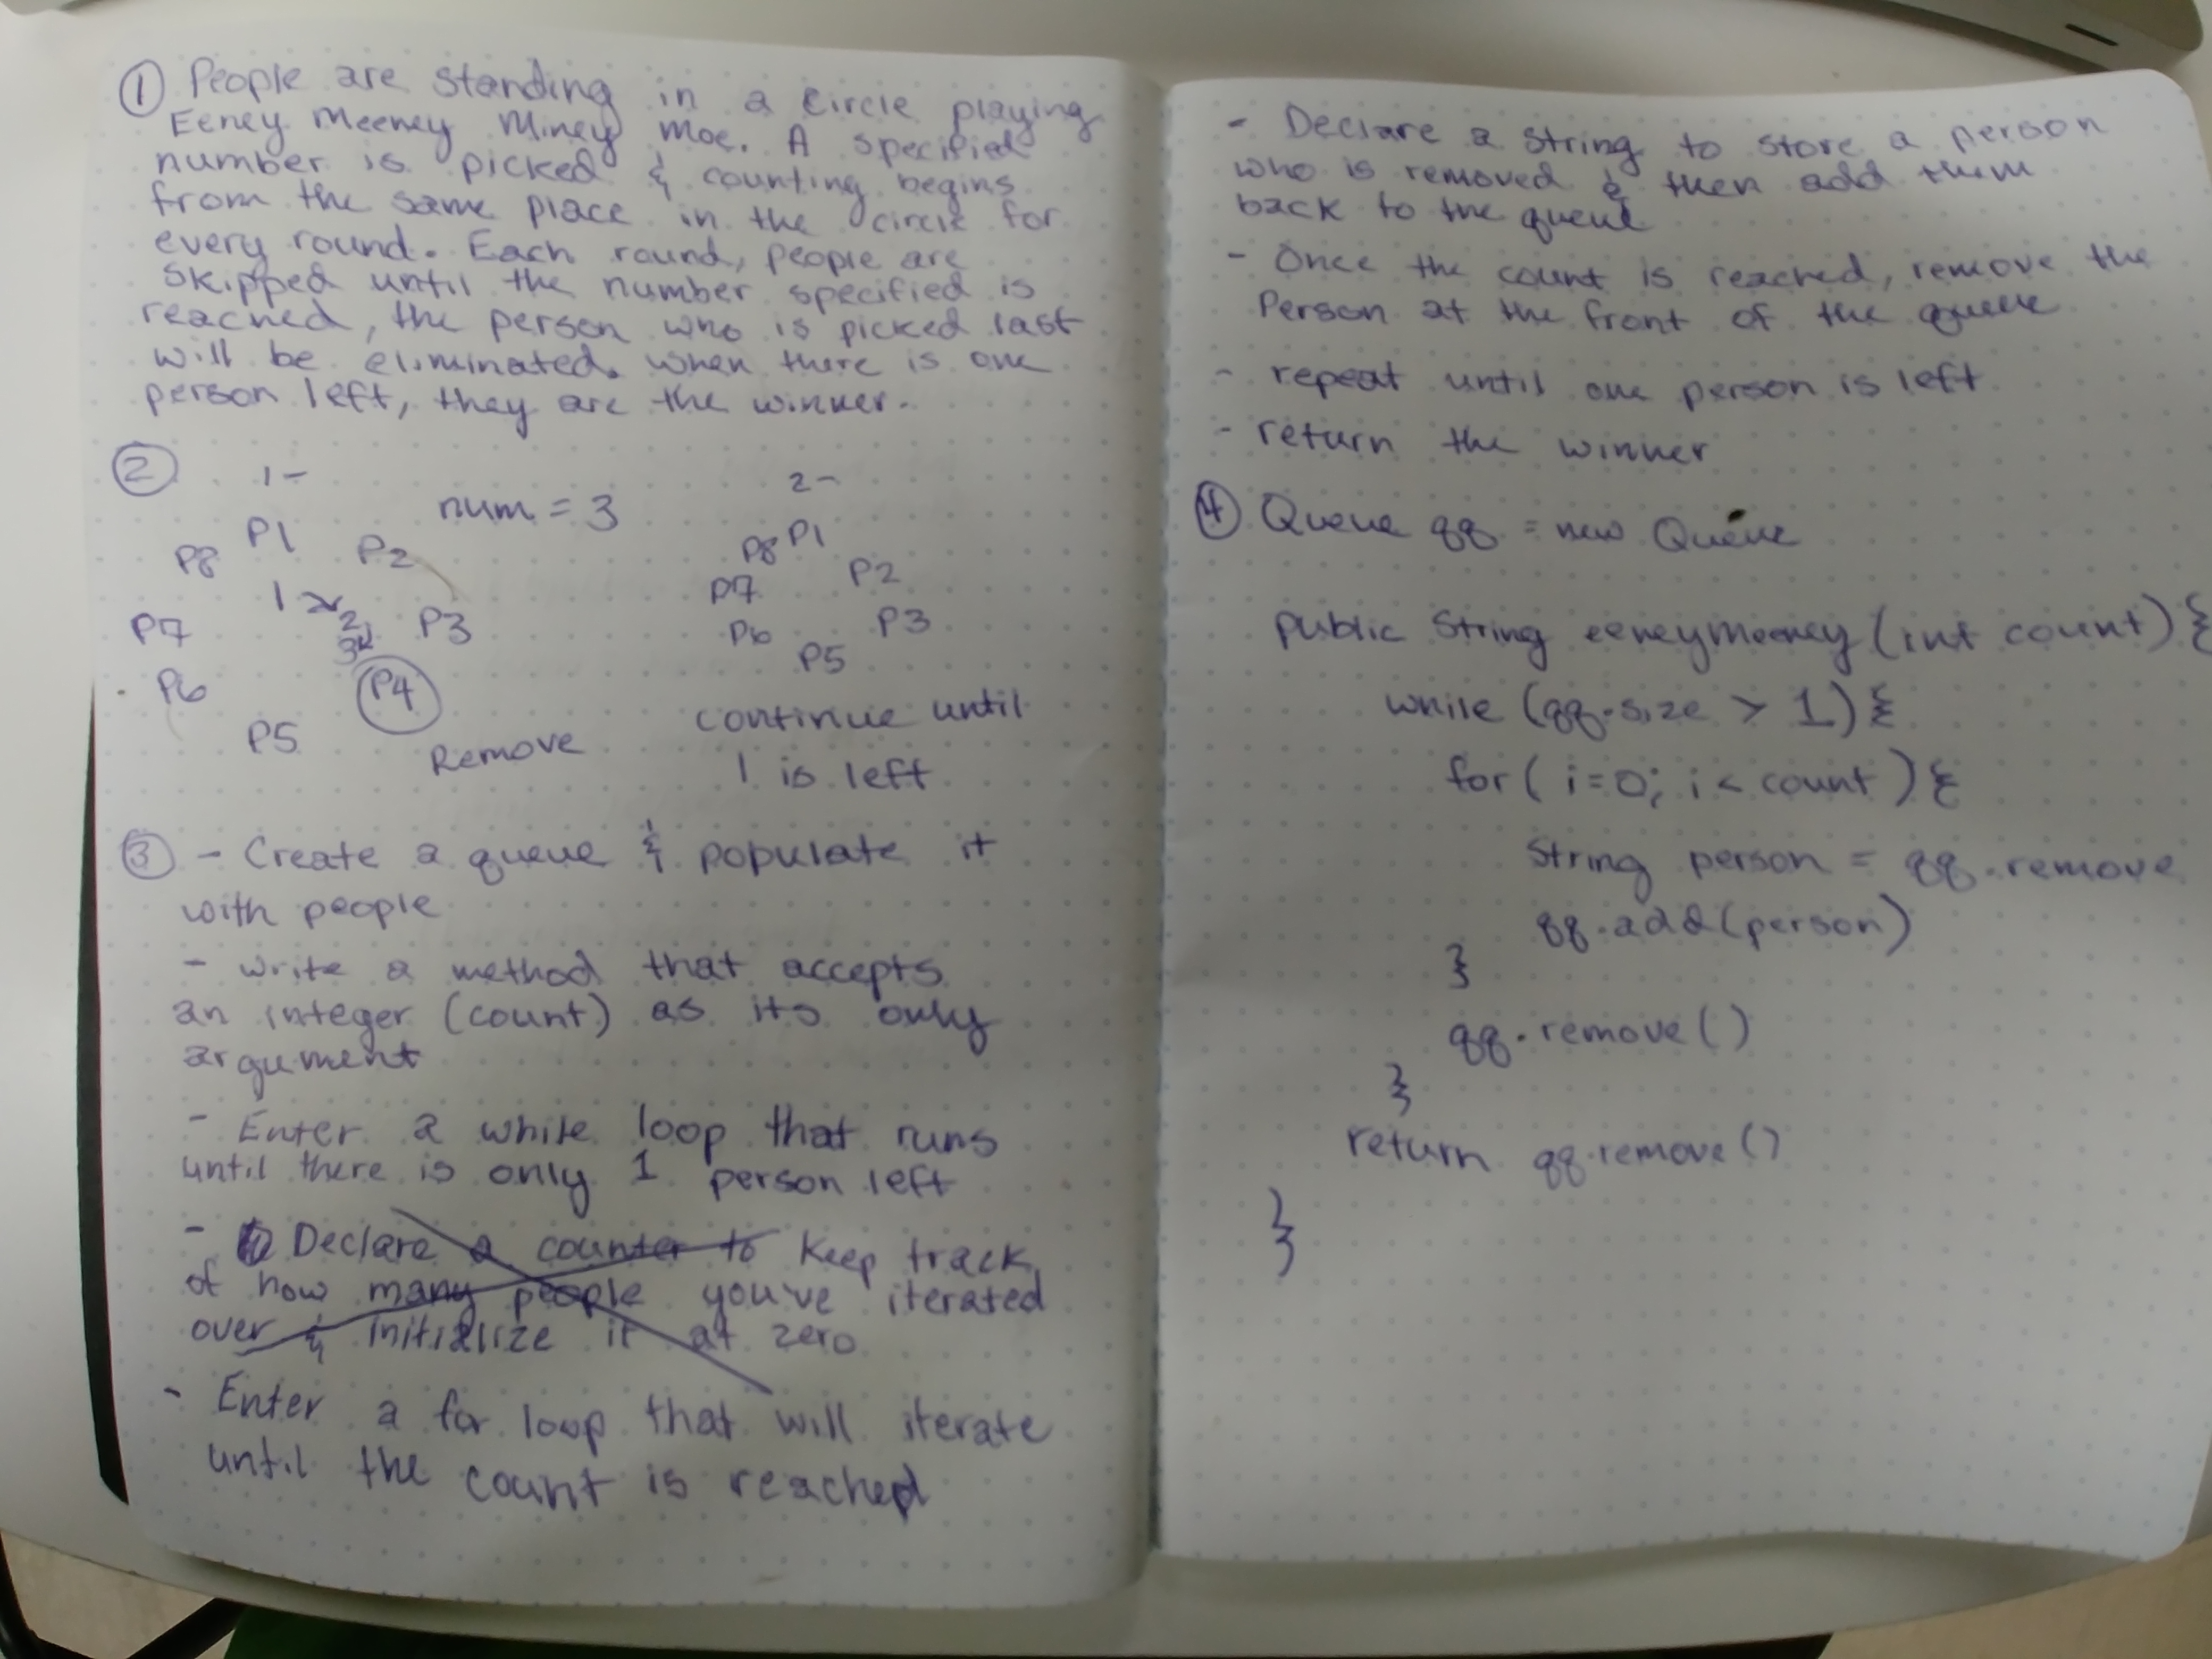 ① People are standing in a circle playing
Eeney Meeney Miney Moe. A specified
number is picked & counting begins
from the same place in the circle for
every round. Each round, people are
skipped until the number specified is
reached, the person who is picked last
will be eliminated. When there is one
person left, they are the winner.
② 1-
num = 3
P1
P2
P8
1 2
3
P3
P7
P4
P6
P5
Remove
2-
P8 P1
P7
P2
P6
P3
P5
continue until
1 is left
③ - Create a queue & populate it
with people
- Write a method that accepts
an integer (count) as its only
argument
- Enter a while loop that runs
until there is only 1 person left
- Declare a counter to keep track
of how many people you've iterated
over & initialize it at zero
- Enter a for loop that will iterate
until the count is reached
- Declare a string to store a person
who is removed & then add them
back to the queue
- Once the count is reached, remove the
Person at the front of the queue
- repeat until one person is left
- return the winner
④ Queue qq = new Queue
public String eeneymeeney (int count) {
while (qq.size > 1) {
for ( i=0; i < count ) {
String person = qq.remove
qq.add(person)
}
qq.remove()
}
return qq.remove()
}